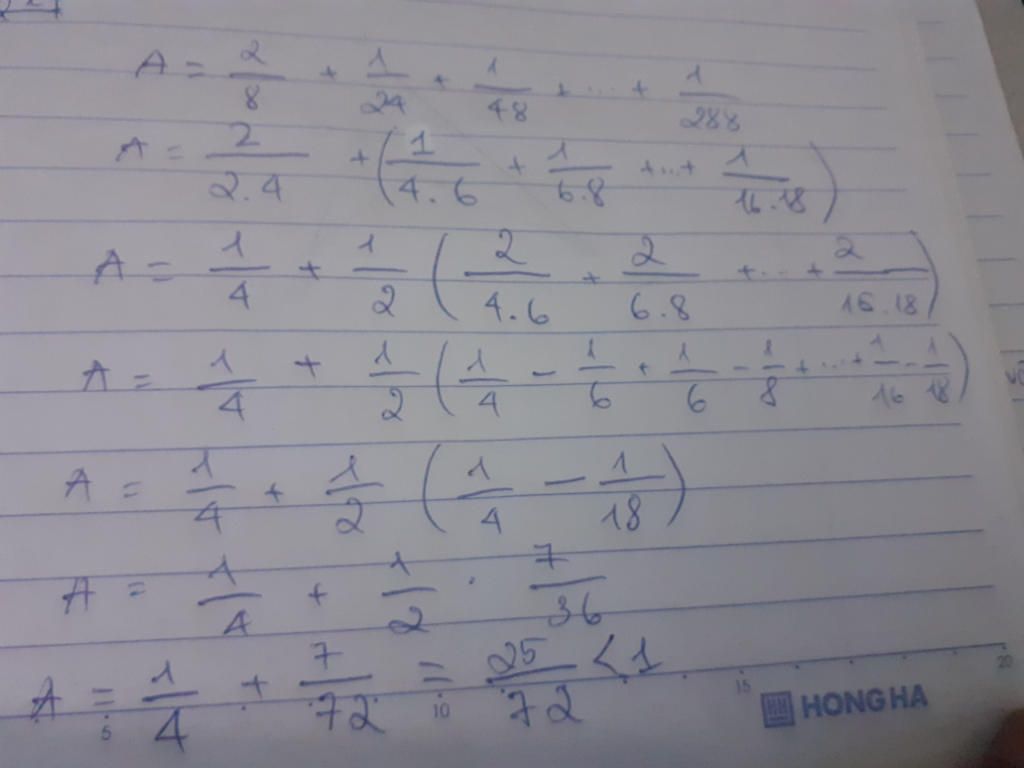 A = 2/8 + 1/24 + 1/48 + ... + 1/288
A = 2/2.4 + (1/4.6 + 1/6.8 + ... + 1/16.18)
A = 1/4 + 1/2 (2/4.6 + 2/6.8 + ... + 2/16.18)
A = 1/4 + 1/2 (1/4 - 1/6 + 1/6 - 1/8 + ... + 1/16 - 1/18)
A = 1/4 + 1/2 (1/4 - 1/18)
A = 1/4 + 1/2 . 7/36
A = 1/4 + 7/72 = 25/72 < 1
5 10 15 20
HONG HA